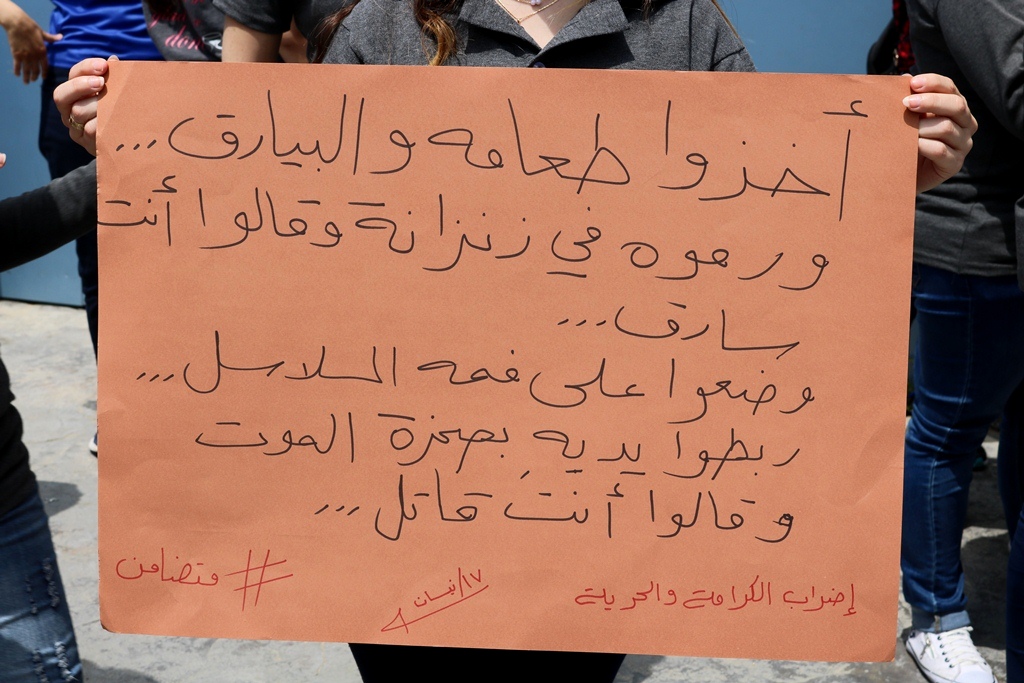 أخذوا طعامه والبيارق...
ورموه في زنزانة وقالوا أنت
سارق...
وضعوا على فمه السلاسل...
ربطوا يديه بصخرة الموت
وقالوا أنتَ قاتل...
إضراب الكرامة والحرية
١٧/نيسان
# متضامن